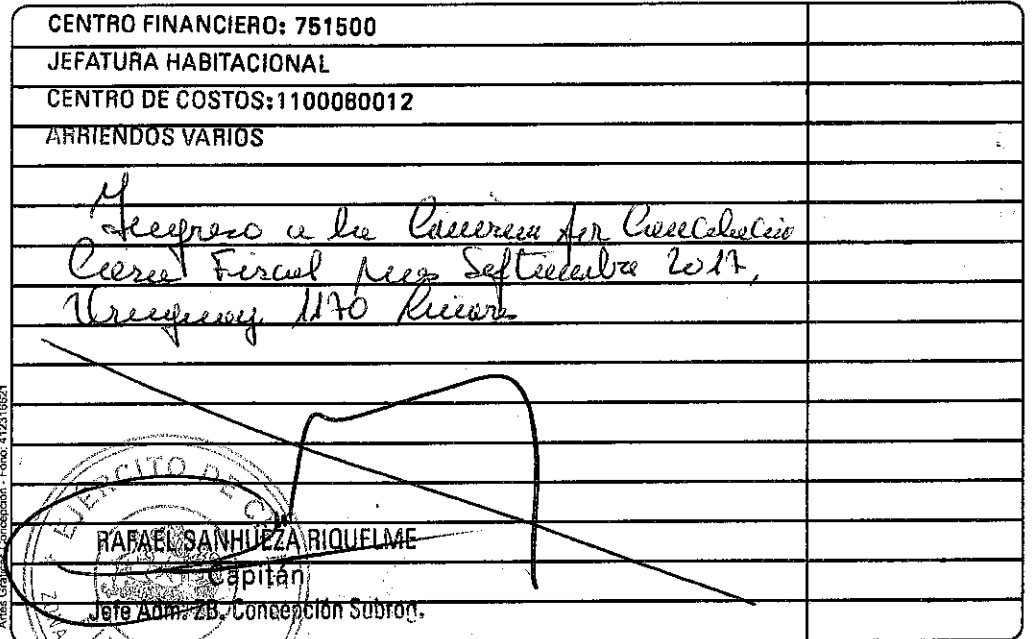 CENTRO FINANCIERO: 751500
JEFATURA HABITACIONAL
CENTRO DE COSTOS:1100080012
ARRIENDOS VARIOS
Ingreso a la por Cancelación
Casa Fiscal mes Septiembre 2017,
Uruguay 1170
EJERCITO DE
RAFAEL SANHUEZA RIQUELME
Capitán
Jefe Adm. ZB. Concepción Subrog.
Artes Gráficas Concepción - Fono: 412316521